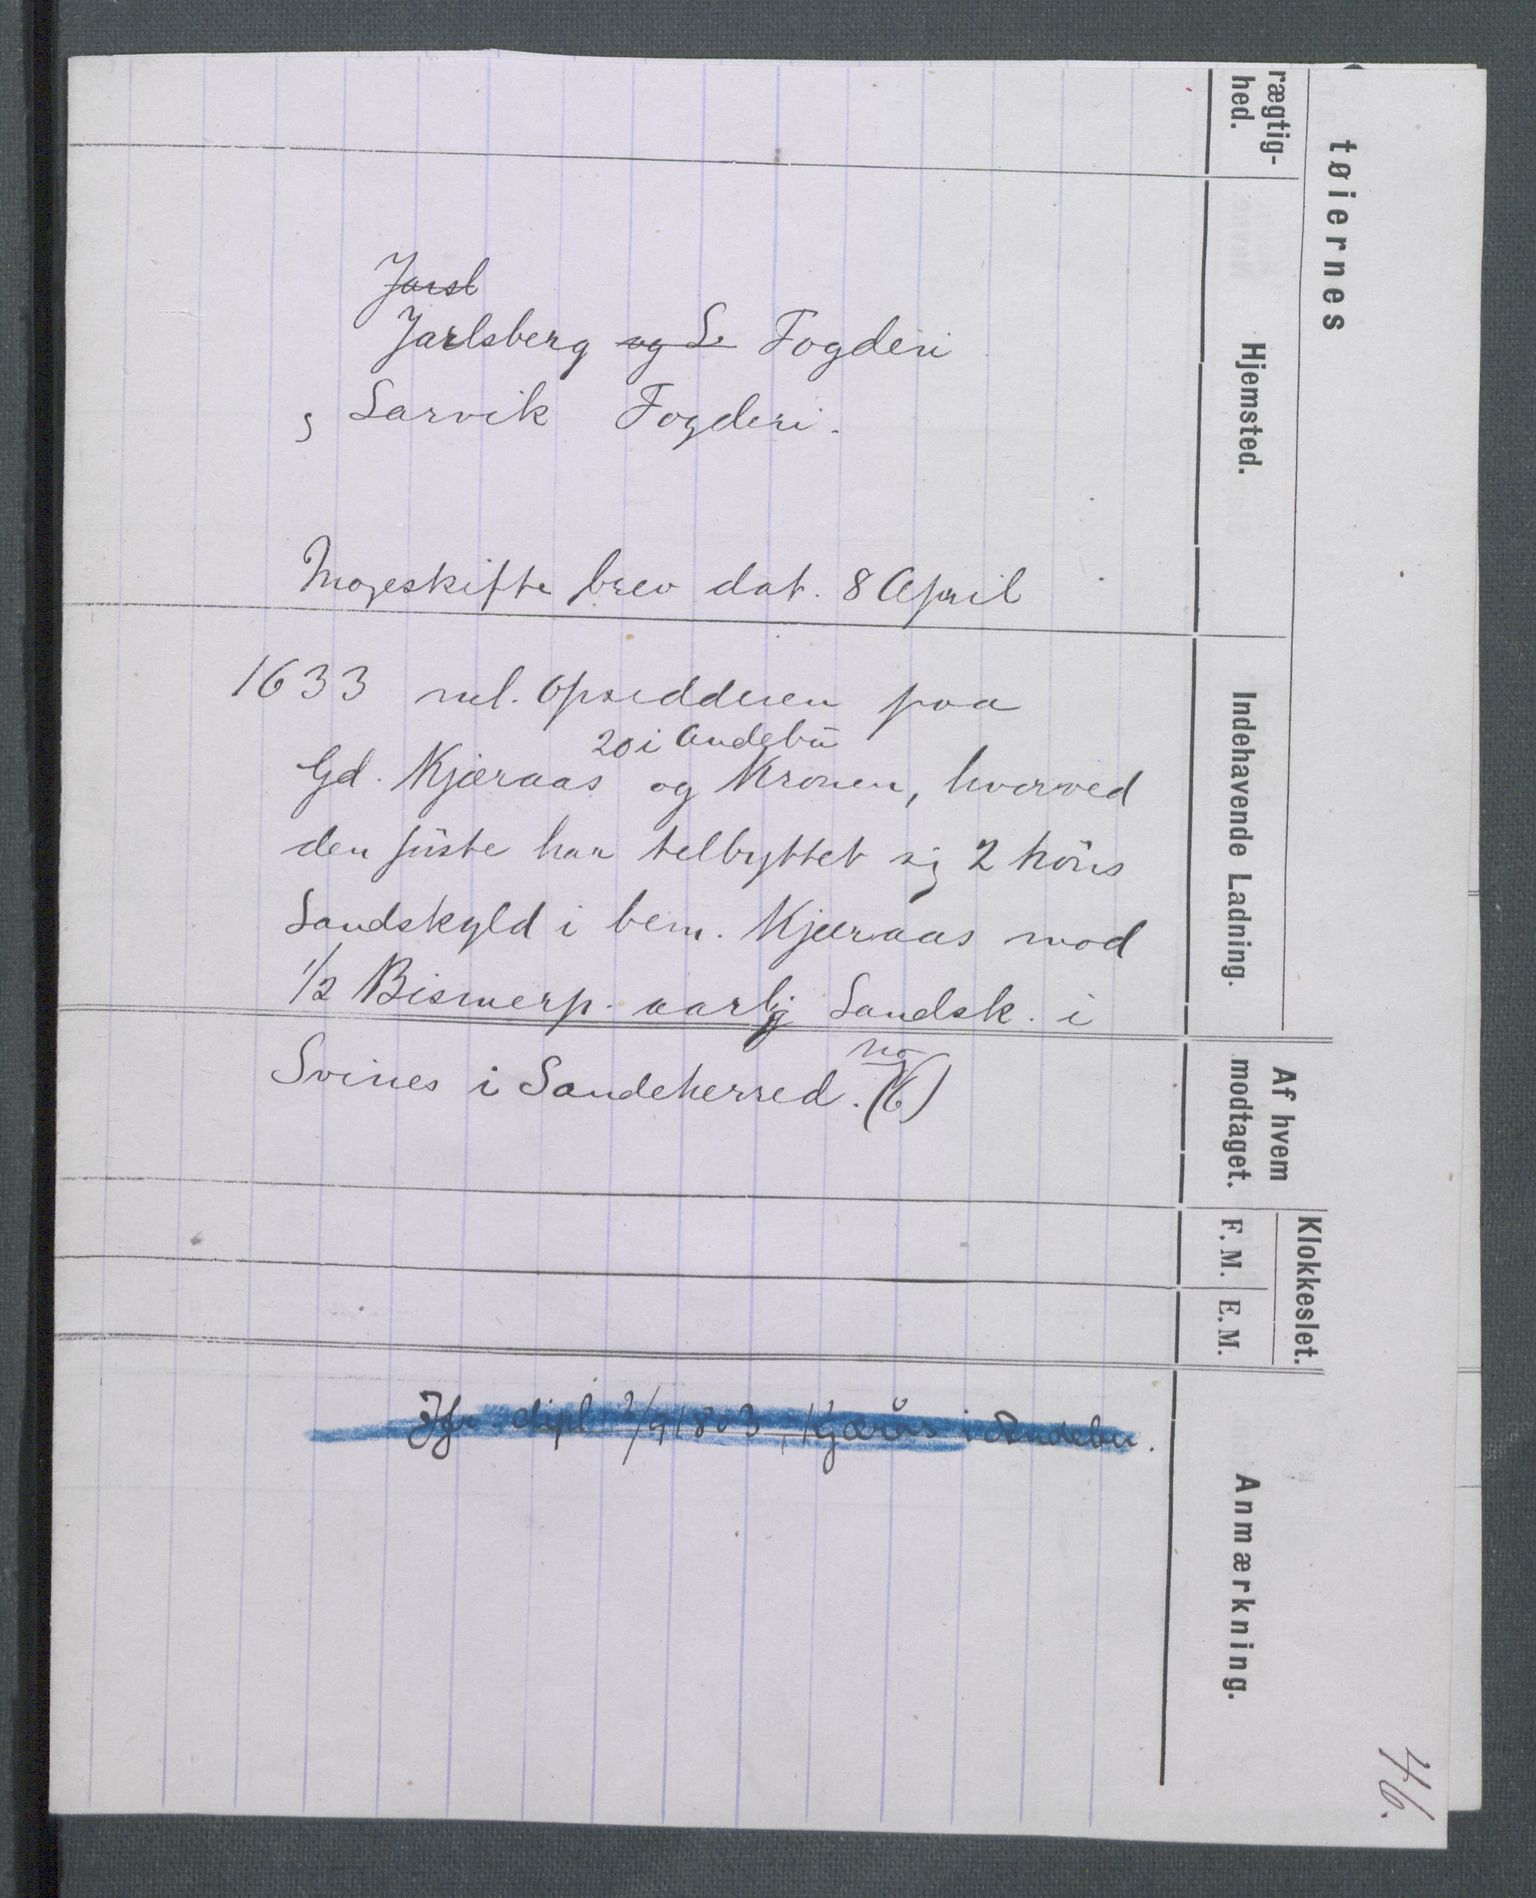 Jarsl
Jarlsberg og L. Fogderi
Larvik Fogderi.
Mageskifte brev dat. 8 April
1633 ml. Opsidderen paa
20 i Andebu
Gd. Kjæraas og Kronen, hvorved
den første har tilbyttet sig 2 Høns
Landskyld i bem. Kjæraas mod
1/2 Bismerp. aarlig Landsk. i
no
Svines i Sandeherred. (6)
Jfr. dipl. 2/9 1803, Kjærås i Andebu.
46.
rægtig-
hed.
tøiernes
Hjemsted.
Indehavende Ladning.
Af hvem
modtaget.
Klokkeslet.
F. M.
E. M.
Anmærkning.